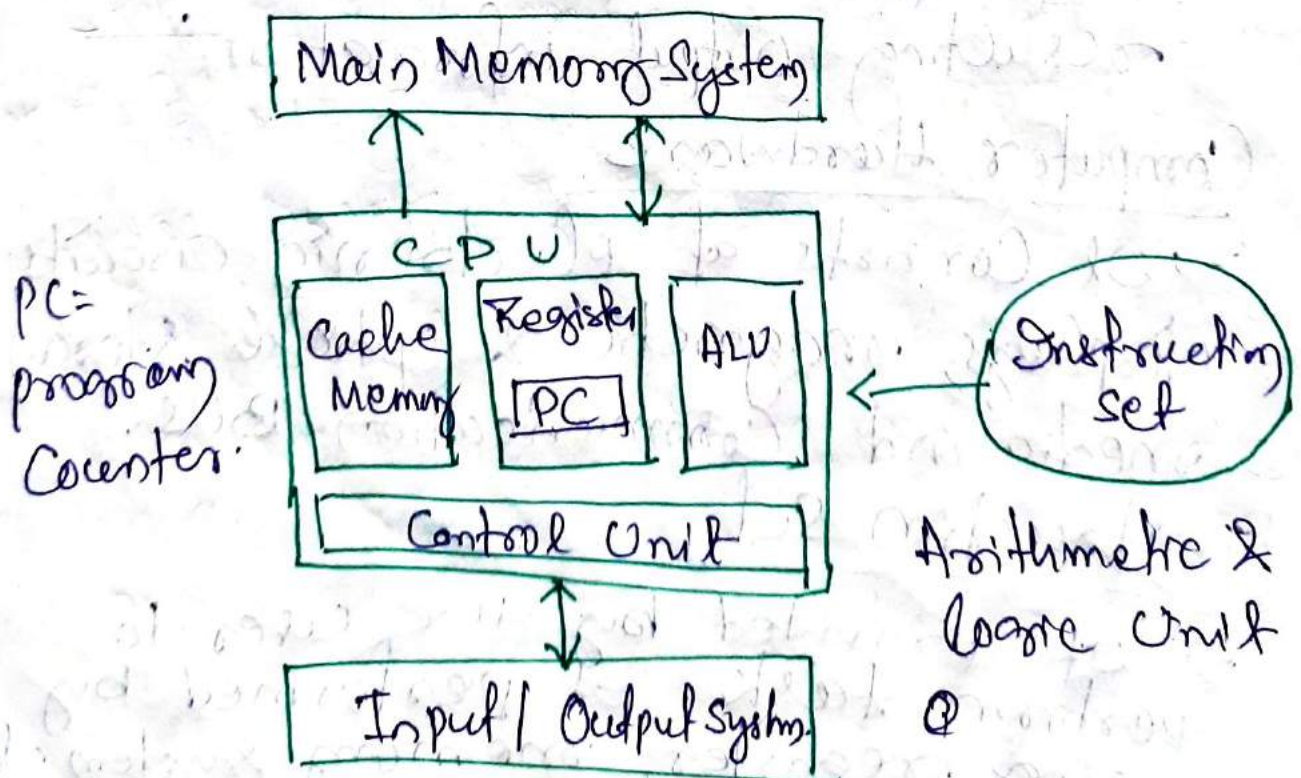 Main Memory System
C P U
PC=
program
Counter.
Cache
Memory
Register
PC
ALU
Instruction
set
Control Unit
Arithmetic &
logic Unit
Input / Output System.